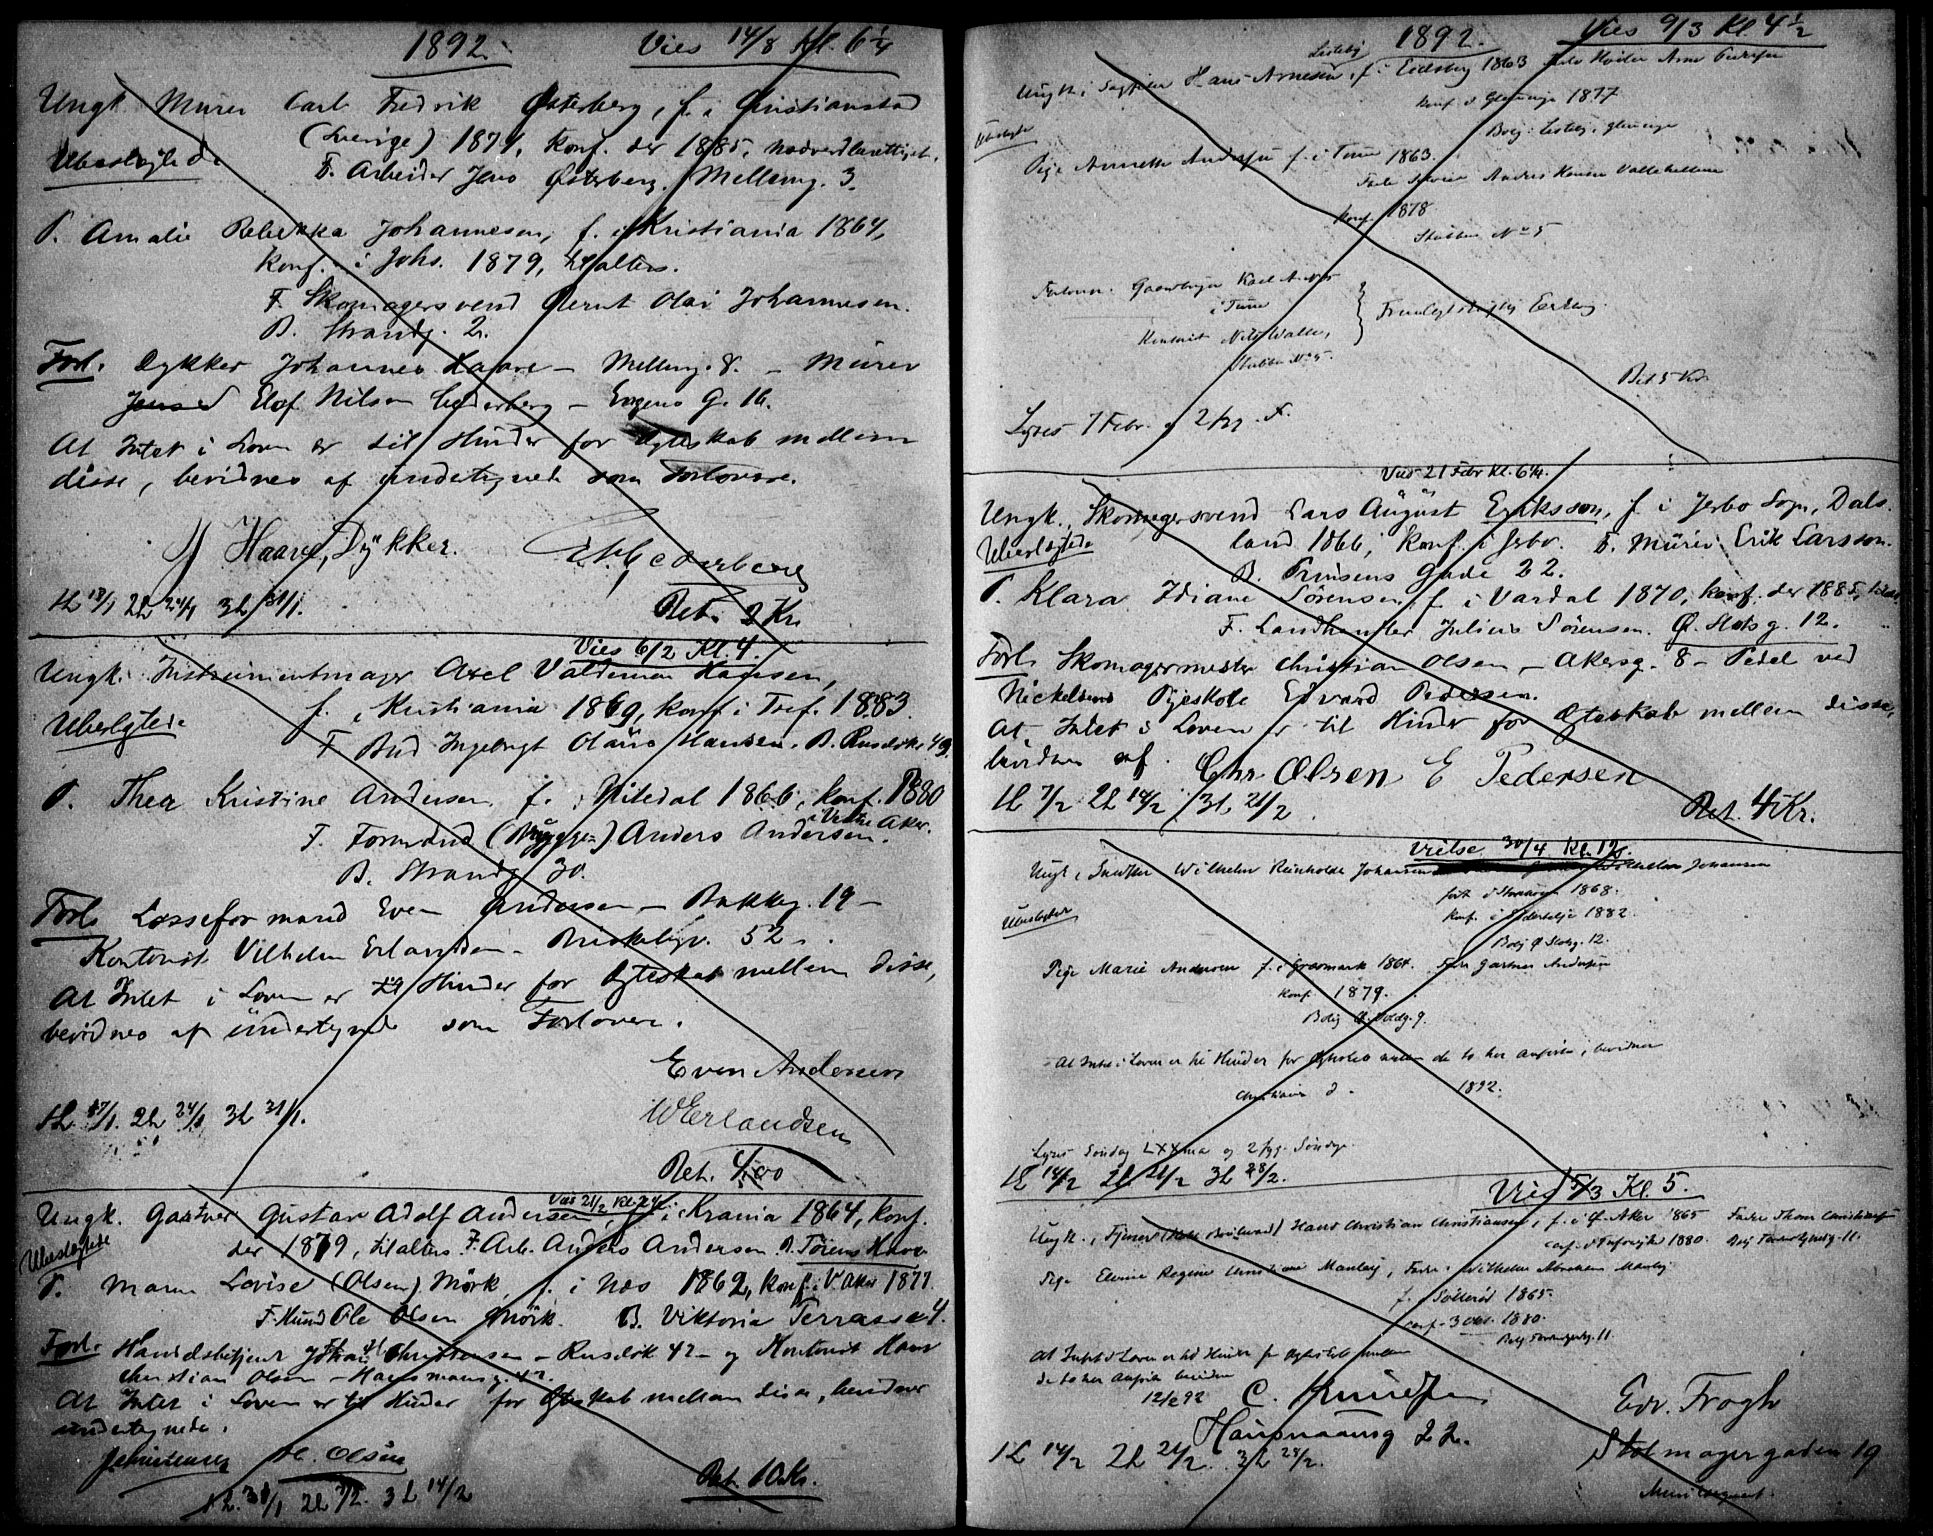 1892. Vies 14/8 Kl. 6 1/4
Ungk. Murer Carl Fredrik Østerberg, f. i Christianstad
(Sverige) 1871, konf. der 1885, nadverdberettiget.
Ubeslægtede
F. Arbeider Jens Østerberg. Mellemg. 3.
P. Amalie Rebekka Johannesen, f. i Kristiania 1864,
konf. i Johs. 1879, Walters.
F. Skomagersvend Bernt Olai Johannesen.
B. Strandg. 2.
Forl. Dykker Johannes Haare – Mellemg. 8. – Murer
Elof Nilsen Cederberg – Eugens G. 16.
At Intet i Loven er til Hinder for Ægteskab mellem
disse, bevidnes af undertegnede som Forlovere.
J Haare, Dykker. E. N. Cederberg
1L 18/1 2L 24/1 3L 31/1.
Bet. 2 Kr.
Vies 6/2 Kl. 4.
Ungk. Instrumentmager Axel Valdemar Hansen,
f. i Kristiania 1869, konf. i Tref. 1883.
Ubeslgtede
F. Bud Ingebrigt Olaus Hansen. B. Ruseløk 49.
P. Thea Kristine Andersen f. i Nitedal 1866, konf. 1880
i Vestre Aker.
F. Formand (Brygge-) Anders Andersen.
B. Strandg 30.
Forl. Losseformand Even Andersen – Bakkeg. 19 –
Kontorist Vilhelm Erlandsen – Briskebyv. 52.
At Intet i Loven er til Hinder for Ægteskab mellem disse,
bevidnes af undertegnede som Forlovere.
Even Andersen
1L 17/1. 2L 24/1 3L 31/1.
W Erlandsen
Bet. 4,00
Vies 21/2 Kl.
Ungk. Gartner Gustav Adolf Andersen, f. i Krania 1864, konf.
der 1879, F. Arb. Anders Andersen B. Tørens Have
Ubeslægtede
P. Maren Lovise (Olsen) Mörk, f. i Nes 1862, konf. i V. Aker 1877.
F. Husmd Ole Olsen Mörk. B. Viktoria Terrasse 4.
Forl. Handelsbetjent Johan Christensen – Ruseløk 42 – og Kontorist Hans
Christian Olsen – Hausmansg. 42.
At Intet i Loven er til Hinder for Ægteskab mellem disse, bevidner
undertegnede.
J Christensen H. Olsen
1L. 31/1 2L 7/2. 3L 14/2
Bet. 10 Kr.
1892. Vies 9/3 Kl 4 1/2
Ungk. Hans Arnesen, f. i Eidsberg 1863
konf. i Glemminge 1877
Bolig: Lisleby i Glemminge
Ubeslægtede
Pige Annette Andersen f. i Tune 1863.
konf. 1878
Stubben No 5
Forlovere: Gaardbruger Karl
i Tune
Kontorist Nils Walle,
Stubben No 5.
Bet 5 Kr.
Lyses 7 Febr. og 2 flg. S.
Vies 21 Febr Kl. 6 1/4.
Ungk. Skomagersvend Lars August Eriksson, f. i Jerbo Sogn, Dals-
land 1866, konf. i Jerbo. F. Murer Erik Larsson.
Ubeslægtede
B. Prinsens Gade 22.
P. Klara Idiane Sörensen, f. i Vardal 1870, konf. der 1885,
F. Landhandler Julius Sörensen. Ø. Slots g. 12.
Forl. Skomagermester Christian Olsen – Akersg. 8 – Pedel ved
Nickelsens Pigeskole Edvard Pedersen.
At Intet i Loven er til Hinder for Ægteskab mellem disse,
bevidnes af. Chr. Olsen E Pedersen
1L 7/2 2L 14/2 3L 21/2.
Bet. 4 Kr.
Vielse 30/4 Kl.
Ungk, Snedker Wilhelm Reinholdt Johansen
født i 1868.
konf. i Södertelje 1882.
Bolig Ø Slotsg. 12.
Ubeslægtede
Pige Marie Andersen f. i Gressmark 1864. Fader Gartner Andersen
konf. 1879.
Bolig Ø. Voldg. 9.
At Intet i Loven er til Hinder for Ægteskab mellem de to her anførte, bevidner
Christiania d. 1892.
Lyses Søndag LXXma og 2 flg. Søndage.
1L 14/2 2L 21/2 3L 28/2.
Vies 5/3 Kl 5.
Ungk., Tjener Hans Christian Christiansen, f. i Ø. Aker 1865 Fader Thom Christiansen
conf. i Trefoldighed 1880.
Pige Elvine Regine Christiane Manley, Fader: Wilhelm Abraham Manley
f. i Solleröd 1865.
conf. 3 Okt. 1880.
At Intet i Loven er til Hinder for Ægteskab mellem
de to her anførte bevidner
12/2 92 C. Knudsen Edv. Frogh
Hausmansg 22. Stolmagergaden 19
1L 14/2 2L 21/2. 3L 28/2.